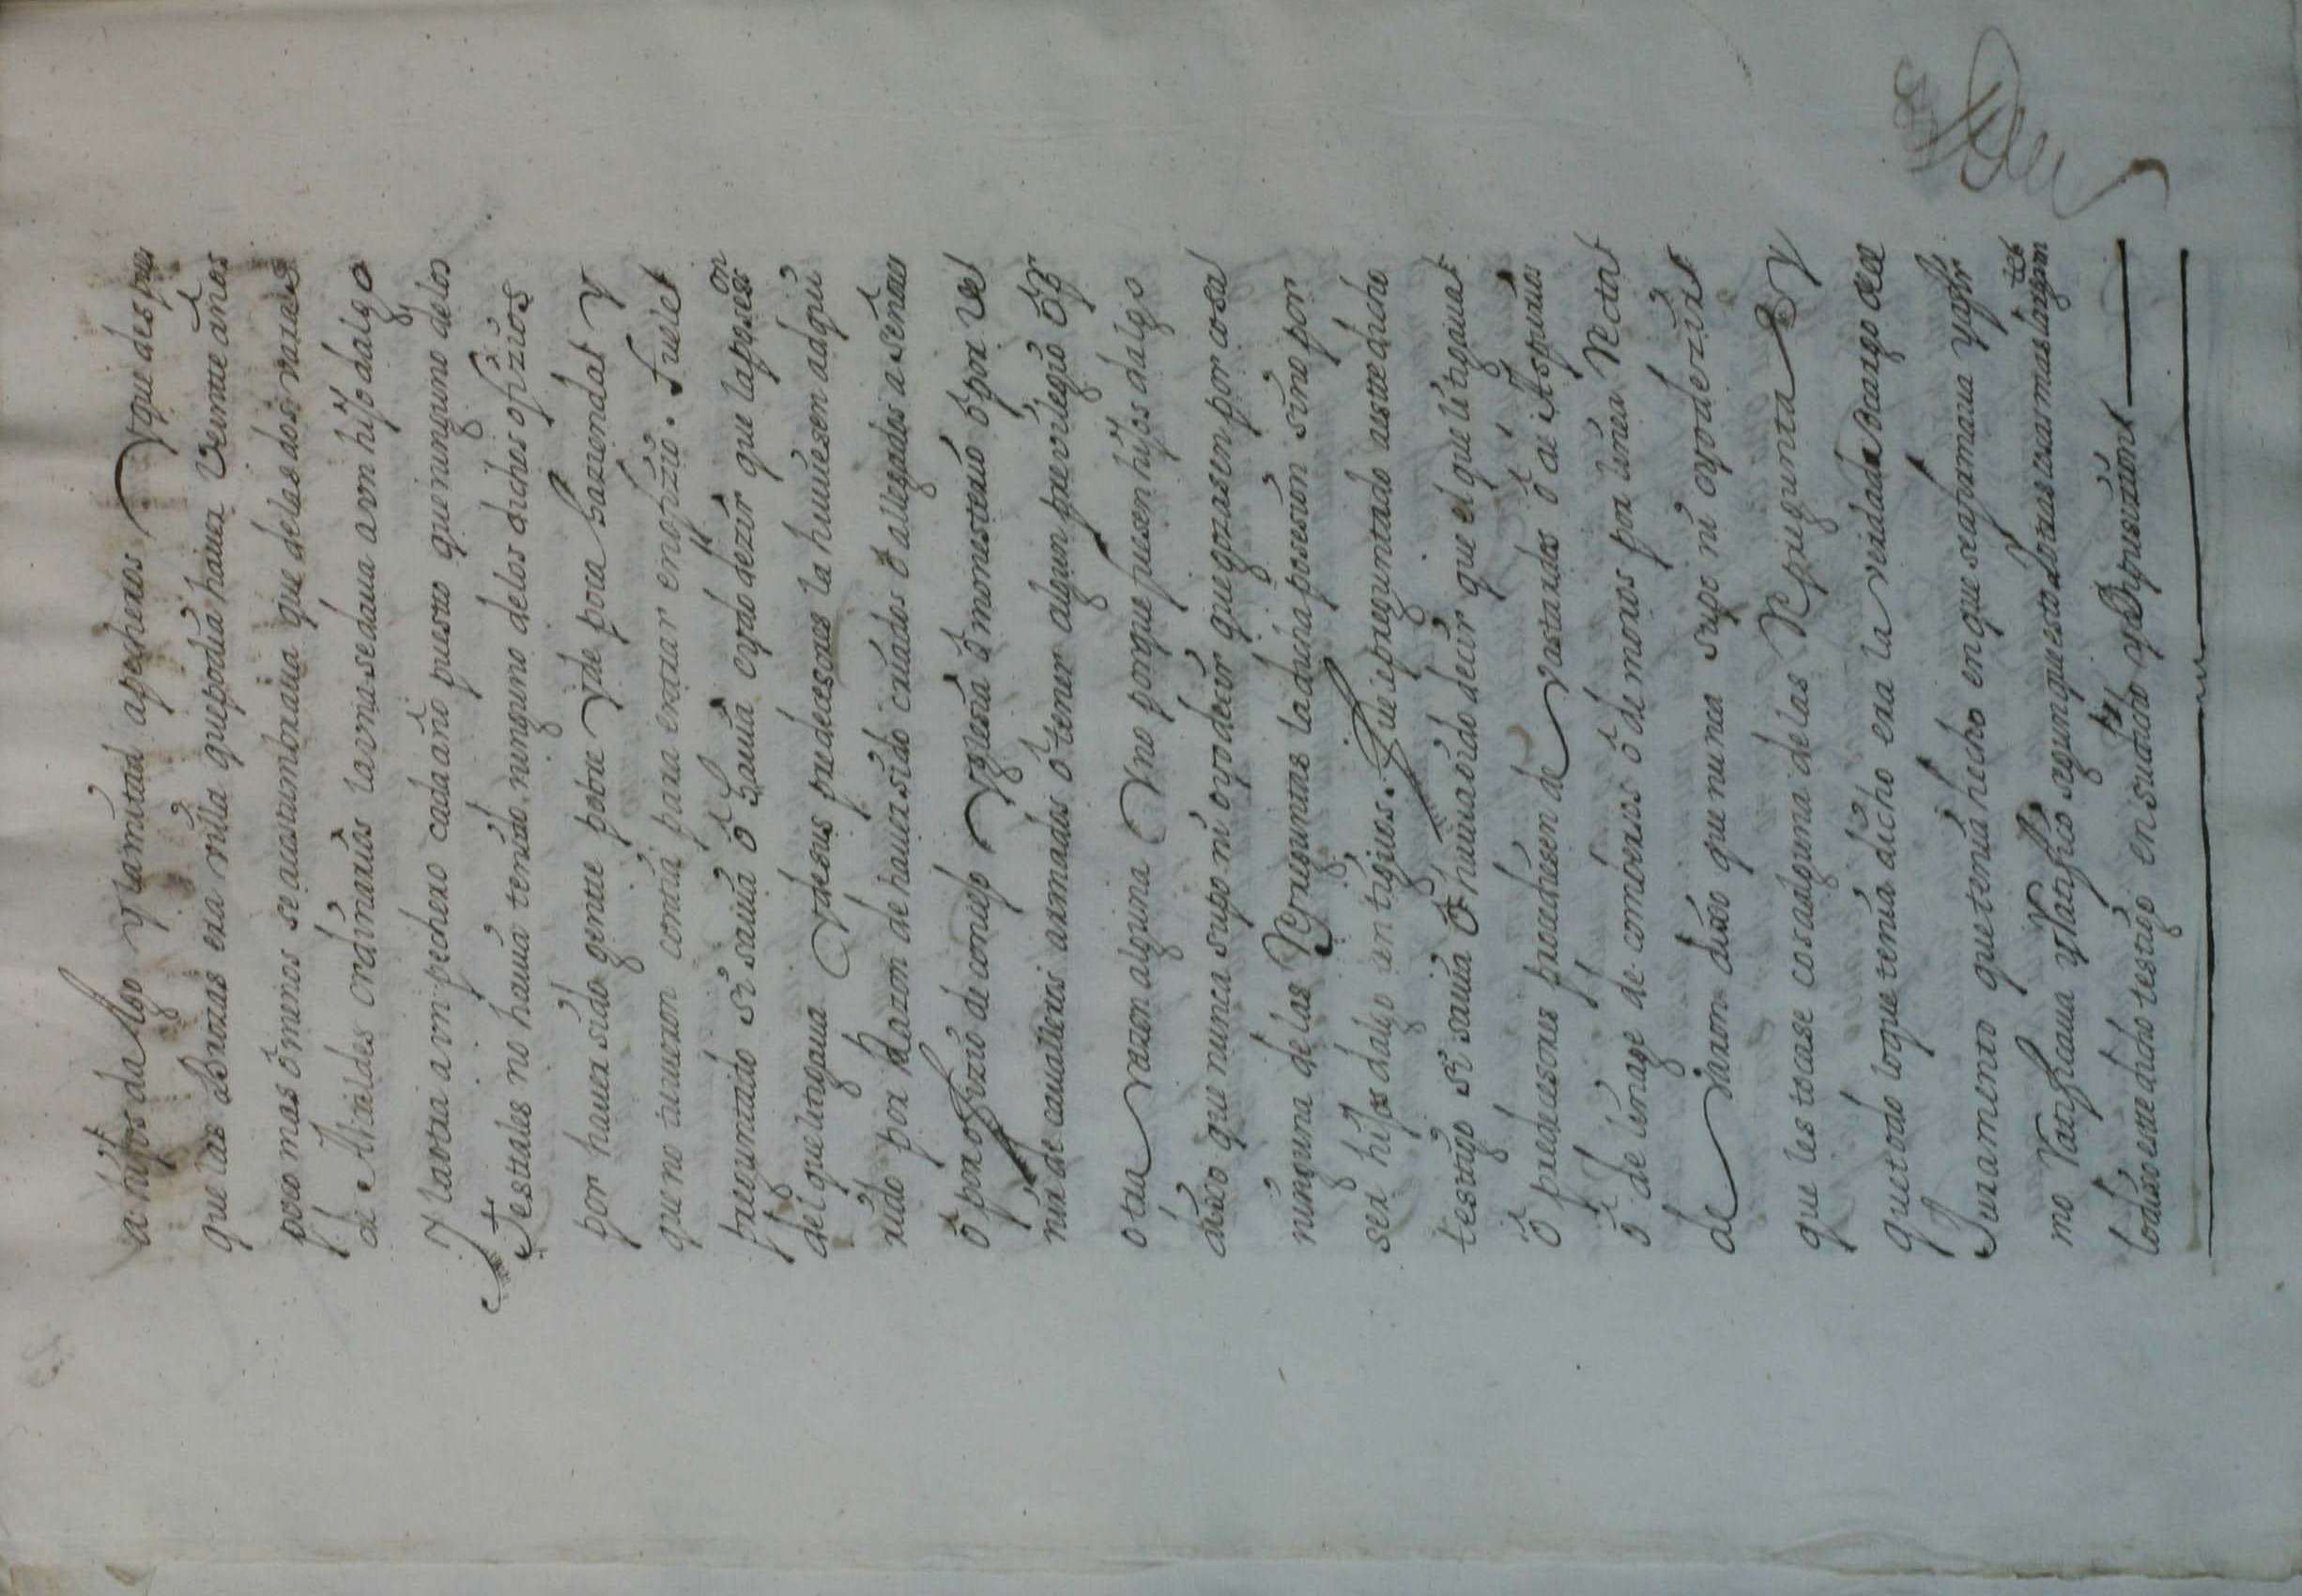 a hijos dalgo y lamitad apecheros y que despues
que las abrazas era villa que podia hauer veinte años
poco mas ô menos se acostumbraua que delas dos varas
de Alcaldes ordinarios la vna sedaua a vn hijo dalgo
y la otra a vn pechero cada año puesto que ninguno delos
testales no hauia tenido ninguno delos dichos ofizios
por hauer sido gente pobre y de poca hazienda y
que no tuuieron contia para entrar en ofizio. fuele
preguntado si sauia ô hauia oydo dezir que la posesion
del que litigaua y de sus predecesores la huuiesen adqui
rido por Razon de hauer sido criados ô allegados a señores
ô por ofizio de consejo yglesia ô monesterio ô por ve
nir de caualleros armados ô tener algun preuilegio ô por
otra razon alguna y no porque fuesen hijos dalgo
dixo que nunca supo ni oyo decir que gozasen por cosa
ninguna de las Repreguntas la dicha posesion sino por
ser hijos dalgo antiguos. fue preguntado aeste dicho
testigo si sauia ô huuiea oido decir que el que litigaua
ô predecesores procediesen de vastardos ô de Aspurios
ô de linage de comberos ô de moros por linea Recta
de varon dixo que nunca supo ni oyo dezir
que les tocase cosa alguna de las Repregunta s y
que todo loque tenia dicho era la verdad a cargo del
Juramento que tenia hecho en que se afirmaua y afir
mo Ratificaua y Ratifico segun que esto
lo dixo este dicho testigo en su dicho y Depusicion